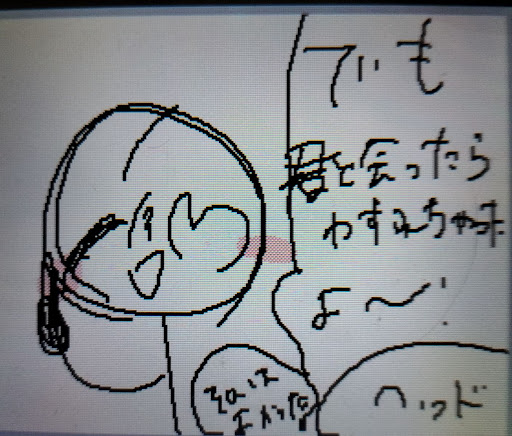 でも
君と会ったら
わすれちゃった
よ～!
それは
よかった
ヘッド